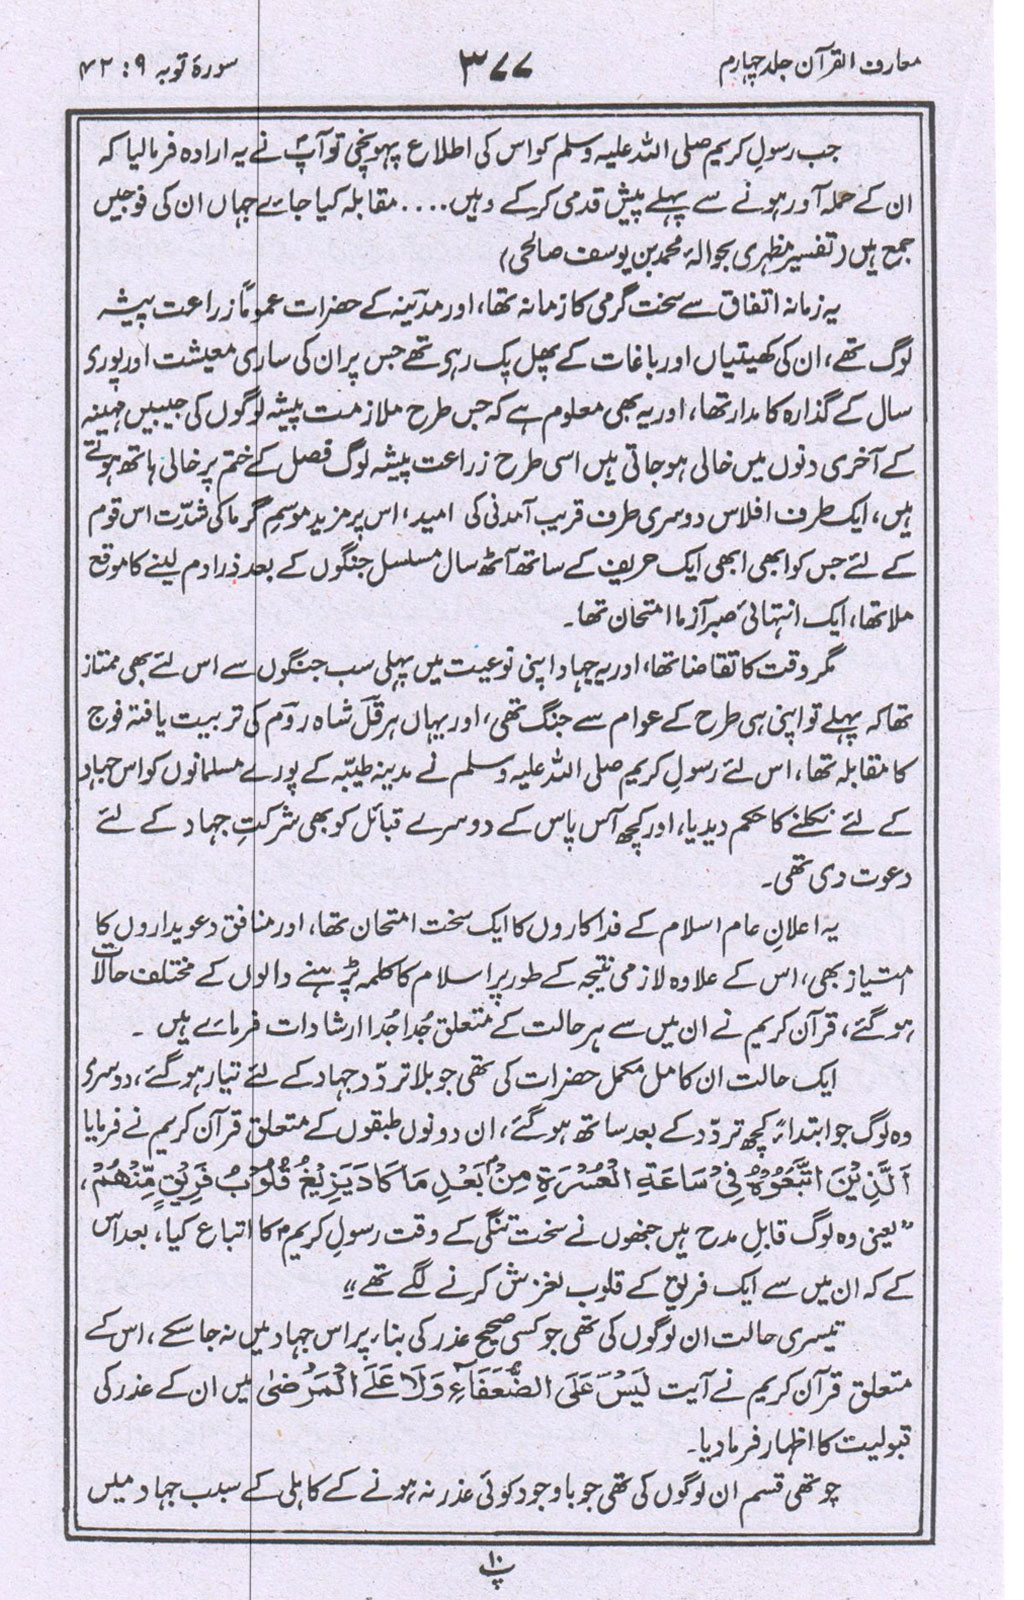 معارف القرآن جلد چہارم
۳۷۷
سورۂ توبہ ۹ : ۴۲
جب رسولِ کریم صلی اللہ علیہ وسلم کو اس کی اطلاع پہونچی تو آپؐ نے یہ ارادہ فرمالیا کہ
ان کے حملہ آور ہونے سے پہلے پیش قدمی کرکے وہیں .... مقابلہ کیا جائے جہاں ان کی فوجیں
جمع ہیں (تفسیر مظہری بحوالہ محمد بن یوسف صالحی)
یہ زمانہ اتفاق سے سخت گرمی کا زمانہ تھا، اور مدینہ کے حضرات عموماً زراعت پیشہ
لوگ تھے، ان کی کھیتیاں اور باغات کے پھل پک رہی تھے جس پر ان کی ساری معیشت اور پوری
سال کے گذارہ کا مدار تھا، اور یہ بھی معلوم ہے کہ جس طرح ملازمت پیشہ لوگوں کی جیبیں مہینہ
کے آخری دنوں میں خالی ہوجاتی ہیں اسی طرح زراعت پیشہ لوگ فصل کے ختم پر خالی ہاتھ ہوتے
ہیں، ایک طرف افلاس دوسری طرف قریب آمدنی کی امید، اس پر مزید موسمِ گرما کی شدّت اس قوم
کے لئے جس کو ابھی ابھی ایک حریف کے ساتھ آٹھ سال مسلسل جنگوں کے بعد ذرا دم لینے کا موقع
ملا تھا، ایک انتہائی صبر آزما امتحان تھا۔
مگر وقت کا تقاضا تھا، اور یہ جہاد اپنی نوعیت میں پہلی سب جنگوں سے اس لئے بھی ممتاز
تھا کہ پہلے تو اپنی ہی طرح کے عوام سے جنگ تھی، اور یہاں ہرقل شاہ روم کی تربیت یافتہ فوج
کا مقابلہ تھا، اس لئے رسولِ کریم صلی اللہ علیہ وسلم نے مدینہ طیّبہ کے پورے مسلمانوں کو اس جہاد
کے لئے نکلنے کا حکم دیدیا، اور کچھ آس پاس کے دوسرے قبائل کو بھی شرکتِ جہاد کے لئے
دعوت دی تھی۔
یہ اعلانِ عام اسلام کے فداکاروں کا ایک سخت امتحان تھا، اور منافق دعویداروں کا
امتیاز بھی، اس کے علاوہ لازمی نتیجہ کے طور پر اسلام کا کلمہ پڑہنے والوں کے مختلف حالات
ہوگئے، قرآن کریم نے ان میں سے ہر حالت کے متعلق جُدا جُدا ارشادات فرمائے ہیں ۔
ایک حالت ان کامل مکمل حضرات کی تھی جو بلا تردّد جہاد کے لئے تیار ہوگئے، دوسری
وہ لوگ جو ابتداءً کچھ تردّد کے بعد ساتھ ہوگئے، ان دونوں طبقوں کے متعلق قرآن کریم نے فرمایا
اَلَّذِيْنَ اتَّبَعُوْهُ فِيْ سَاعَةِ الْعُسْرَةِ مِنْۢ بَعْدِ مَا كَادَ يَزِيْغُ قُلُوْبُ فَرِيْقٍ مِّنْهُمْ،
”یعنی وہ لوگ قابلِ مدح ہیں جنھوں نے سخت تنگی کے وقت رسولِ کریمؐ کا اتباع کیا، بعد اس
کے کہ ان میں سے ایک فریق کے قلوب لغزش کرنے لگے تھے“
تیسری حالت ان لوگوں کی تھی جو کسی صحیح عذر کی بناء پر اس جہاد میں نہ جاسکے، اس کے
متعلق قرآن کریم نے آیت لَيْسَ عَلَى الضُّعَفَآءِ وَلَا عَلَى الْمَرْضٰى میں ان کے عذر کی
قبولیت کا اظہار فرمادیا۔
چوتھی قسم ان لوگوں کی تھی جو باوجود کوئی عذر نہ ہونے کے کاہلی کے سبب جہاد میں
پ۱۰